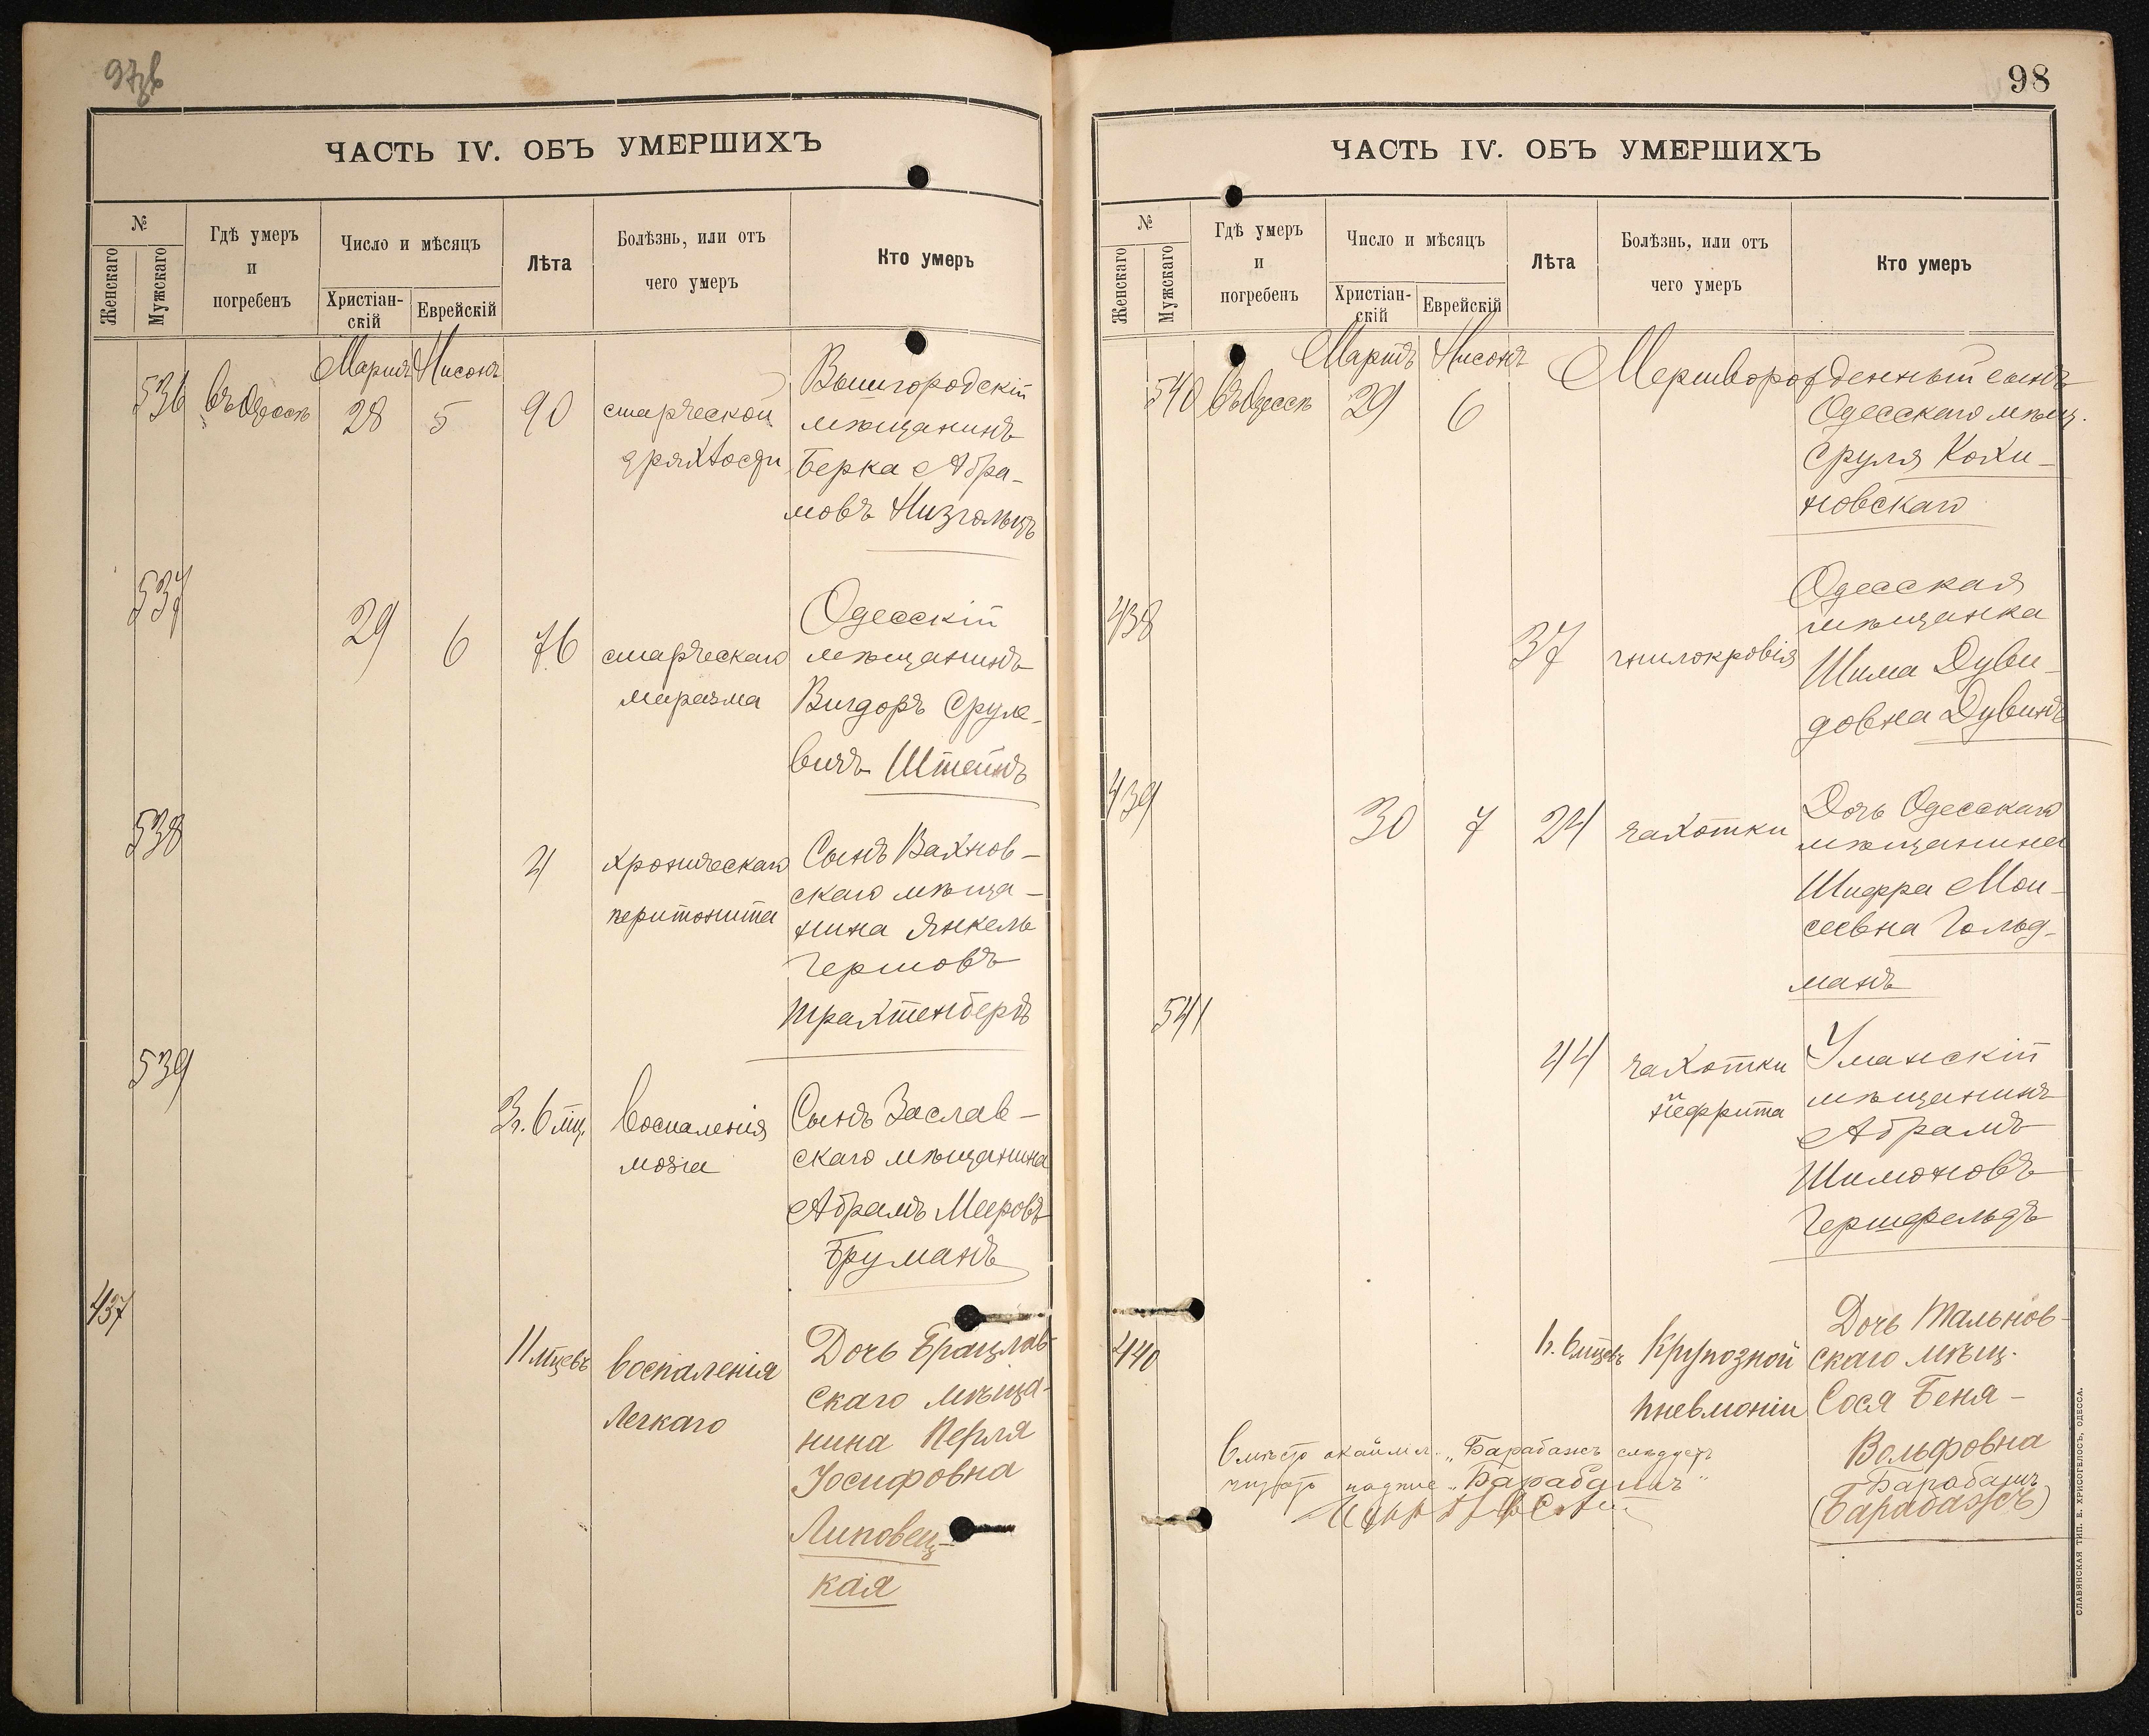 97б
ЧАСТЬ IV. ОБЪ УМЕРШИХЪ
№
Женскаго
Мужскаго
Гдѣ умеръ
и
погребенъ
Число и мѣсяцъ
Христіан-
скій
Еврейскій
Лѣта
Болѣзнь, или отъ
чего умеръ
Кто умеръ
Мартъ Нисонъ
536 въ Одессѣ 28 5 90 старческой
дряхлости
Вышгородскій
мѣщанинъ
Берка Абра-
мовъ Низгольцъ
537 29 6 76 старческаго
маразма
Одесскій
мѣщанинъ
Вигдоръ Сруле-
вичъ Штейнъ
538 4 хроническаго
перитонита
Сынъ Вахнов-
скаго мѣща-
нина Янкель
Гершовъ
Трахтенбергъ
539 3 г. 6 мц. воспаленія
мозга
Сынъ Заслав-
скаго мѣщанина
Абрамъ Мееровъ
Груманъ
437 11 мцевъ воспаленія
легкаго
Дочь Брацлав-
скаго мѣща-
нина Перля
Іосифовна
Липовец-
кая
98
ЧАСТЬ IV. ОБЪ УМЕРШИХЪ
№
Женскаго
Мужскаго
Гдѣ умеръ
и
погребенъ
Число и мѣсяцъ
Христіан-
скій
Еврейскій
Лѣта
Болѣзнь, или отъ
чего умеръ
Кто умеръ
Мартъ Нисонъ
540 въ Одессѣ 29 6 Мертворожденный сынъ
Одесскаго мѣщ.
Сруля Кохи-
новскаго
438 37 гнилокровія
Одесская
мѣщанка
Шима Дуви-
довна Дувинъ
439 30 7 24 чахотки
Дочь Одесскаго
мѣщанина
Шифра Мои-
сеевна Гольд-
манъ
541 44 чахотки
и
нефрита
Уманскій
мѣщанинъ
Абрамъ
Шимоновъ
Гершфельдъ
440 1 г. 6 мцевъ Крупозной
пневмоніи
Дочь Тальнов-
скаго мѣщ.
Сося Беня-
Вольфовна
Барабашъ
(Барабажъ)
Вмѣсто окаймл. „Барабажъ слѣдуетъ
читать надпис „Барабашъ"
СЛАВЯНСКАЯ ТИП. Е. ХРИСОГЕЛОСЪ, ОДЕССА.